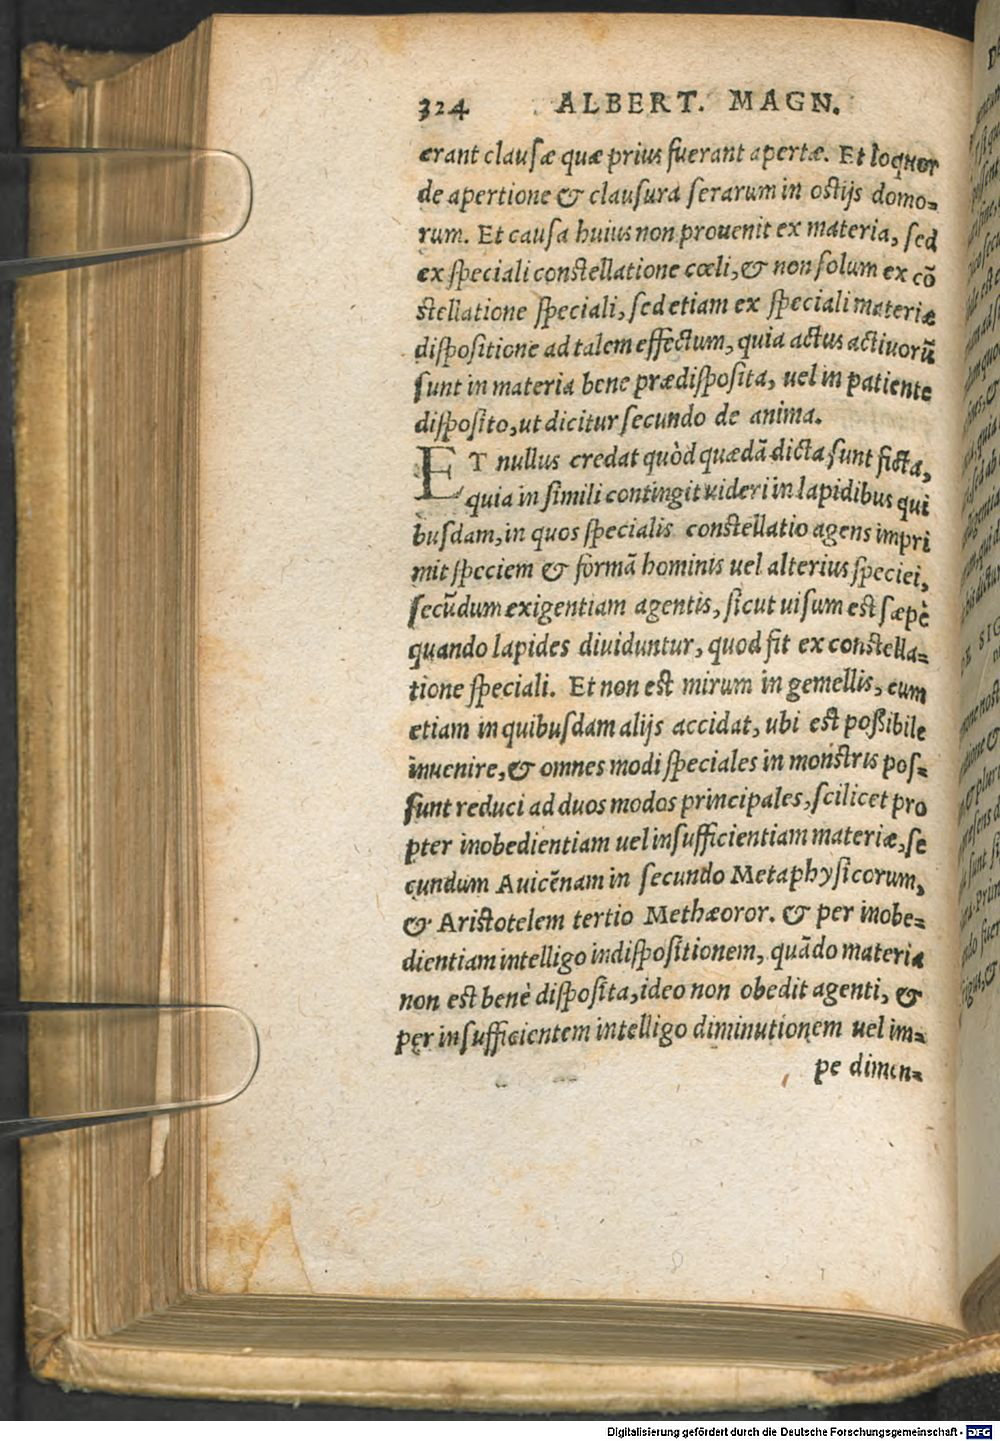 324 ALBERT. MAGN.
erant clausæ quæ prius fuerant apertæ. Et loquor
de apertione & clausura serarum in ostijs domo=
rum. Et causa huius non prouenit ex materia, sed
ex speciali constellatione cœli, & non solum ex cō
stellatione speciali, sed etiam ex speciali materiæ
dispositione ad talem effectum, quia actus actiuorū
sunt in materia bene prædisposita, uel in patiente
disposito, ut dicitur secundo de anima.
ET nullus credat quòd quædā dicta sunt ficta,
quia in simili contingit uideri in lapidibus qui
busdam, in quos specialis constellatio agens impri
mit speciem & formā hominis uel alterius speciei,
secūdum exigentiam agentis, sicut uisum est sæpè
quando lapides diuiduntur, quod fit ex constella=
tione speciali. Et non est mirum in gemellis, cum
etiam in quibusdam alijs accidat, ubi est possibile
inuenire, & omnes modi speciales in monstris pos=
sunt reduci ad duos modos principales, scilicet pro
pter inobedientiam uel insufficientiam materiæ, se
cundum Auicēnam in secundo Metaphysicorum,
& Aristotelem tertio Methæoror. & per inobe=
dientiam intelligo indispositionem, quādo materia
non est benè disposita, ideo non obedit agenti, &
per insufficientem intelligo diminutionem uel im=
pe dimen=
Digitalisierung gefördert durch die Deutsche Forschungsgemeinschaft - DFG